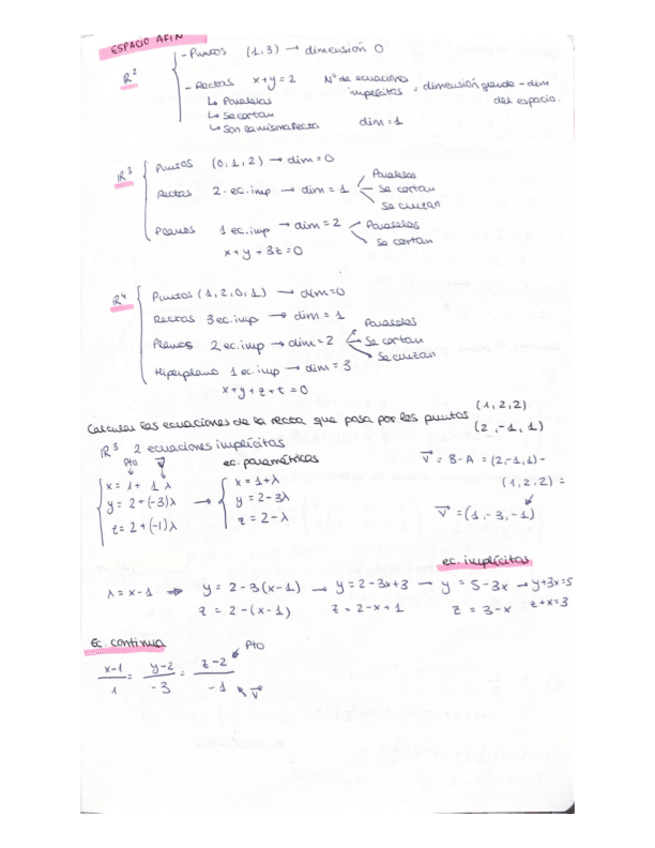 ESPACIO AFIN
R² - Puntos (1,3) → dimensión 0
- Rectas x+y=2 Nº de ecuaciones implícitas = dimensión grande - dim del espacio.
↳ Paralelas
↳ Se cortan
↳ Son la misma recta dim=1
R³ Puntos (0,1,2) → dim=0
Rectas 2. ec.imp → dim=1 Paralelas
Se cortan
Se cruzan
Planos 1 ec.imp → dim=2 Paralelas
Se cortan
x+y+3z=0
R⁴ Puntos (1,2,0,1) → dim=0
Rectas 3 ec.imp → dim=1
Planos 2 ec.imp → dim=2 Paralelas
Se cortan
Se cruzan
Hiperplano 1 ec.imp → dim=3
x+y+z+t=0
Calcular las ecuaciones de la recta que pasa por los puntos (1,2,2)
(2,-1,1)
R³ 2 ecuaciones implícitas
Pto V⃗ ec. paramétricas
x=1+1λ
y=2+(-3)λ
z=2+(-1)λ
→ x=1+λ
y=2-3λ
z=2-λ
V⃗ = B-A = (2,-1,1) -
(1,2,2) =
V⃗ = (1,-3,-1)
ec. implícitas
λ=x-1 ⇒ y=2-3(x-1) → y=2-3x+3 → y=5-3x → y+3x=5
z=2-(x-1) z=2-x+1 z=3-x z+x=3
Ec. continua
Pto
x-1/1 = y-2/-3 = z-2/-1
V⃗